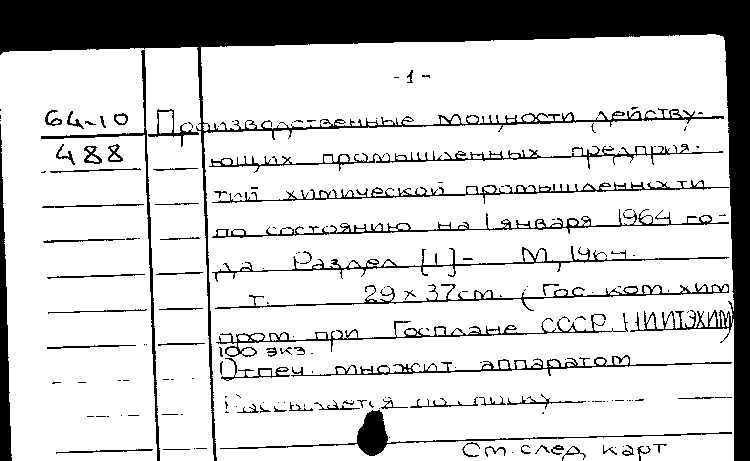 -1-
64-10 Производственные мощности действу-
488 ющих промышленных предприя-
тий химической промышленности
по состоянию на 1 января 1964 го-
да. Раздел [1]- М, 1964.
т. 29 x 37 см. (Гос. ком. хим
пром при Госплане СССР. НИИТЭХИМ)
100 экз.
Отпеч. множит. аппаратом
Рассылается по списку
См. след. карт